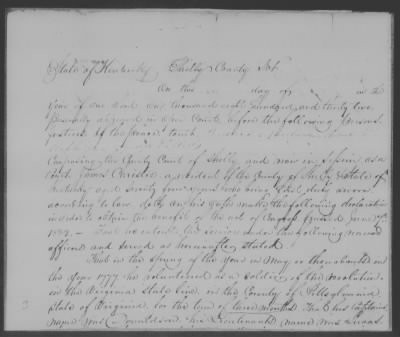 State of Kentucky Shelby County Sct.
On this day of in the
year of our Lord one thousand eight hundred and thirty two
personally appeared in open Court, before the following persons
justices of the peace
Composing the County Court of Shelby and now in Session as a
Court James Christie a resident of the County of Shelby & State of
Kentucky aged Seventy four years who being first duly sworn
according to law doth on his oath make the following declaration
in order to obtain the benefit of the act of Congress passed June 7th
1832 – That he entered the service under the following named
officers and served as hereinafter stated
That in the Spring of the year in May or thereabouts in
the year 1777 he volunteered as a Soldier of the revolution
in the Virginia State line in the County of Pittsylvania
State of Virginia for the term of three months That his Captains
name was Donaldson his Lieutenants name was